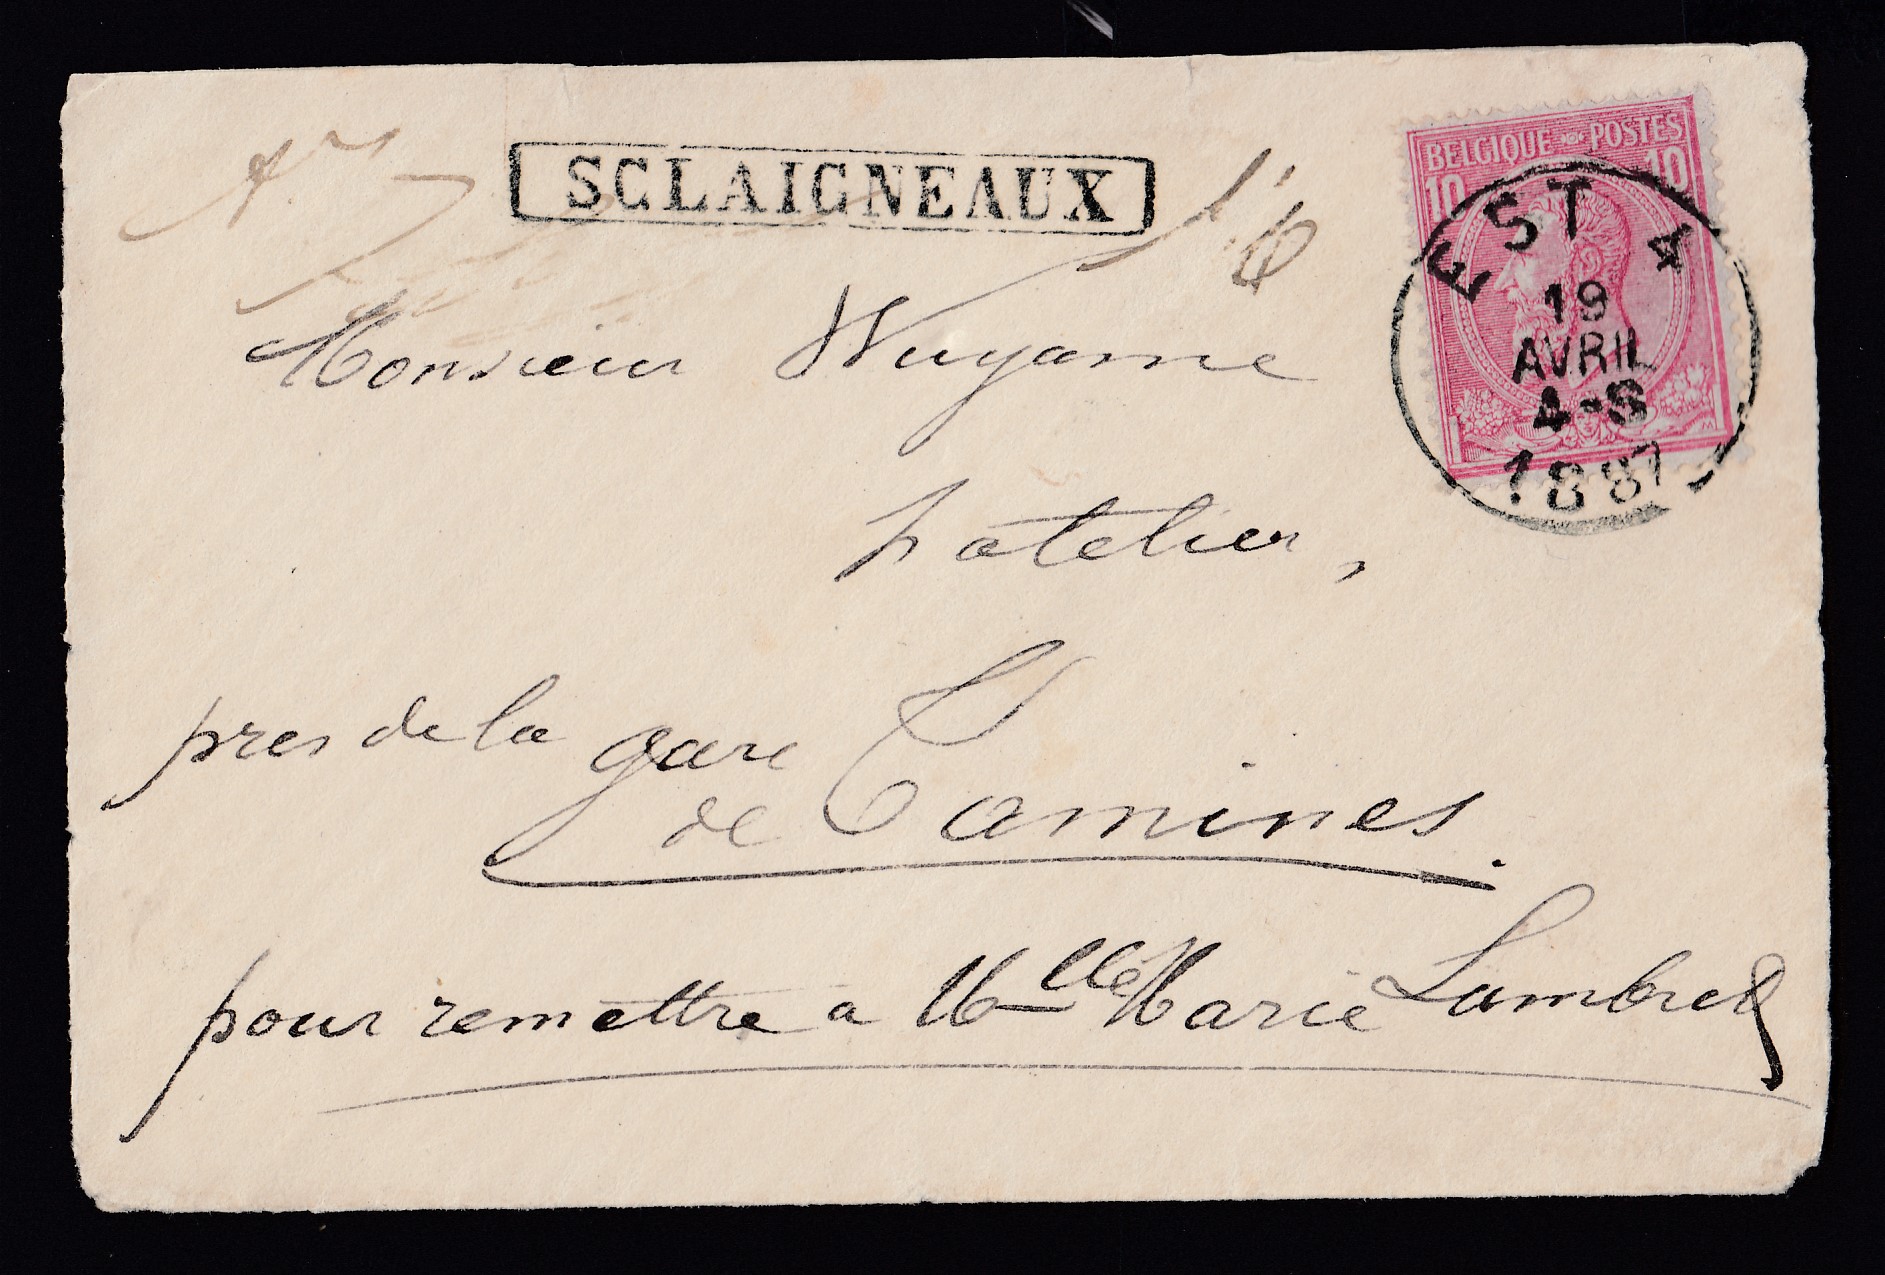 SCLAIGNEAUX
BELGIQUE POSTES
10 10
EST 4
19
AVRIL
4-S
1887
Monsieur Wuyame
hatelier,
pres de la gare
de Tamines.
pour remettre a Mlle Marie Lambret